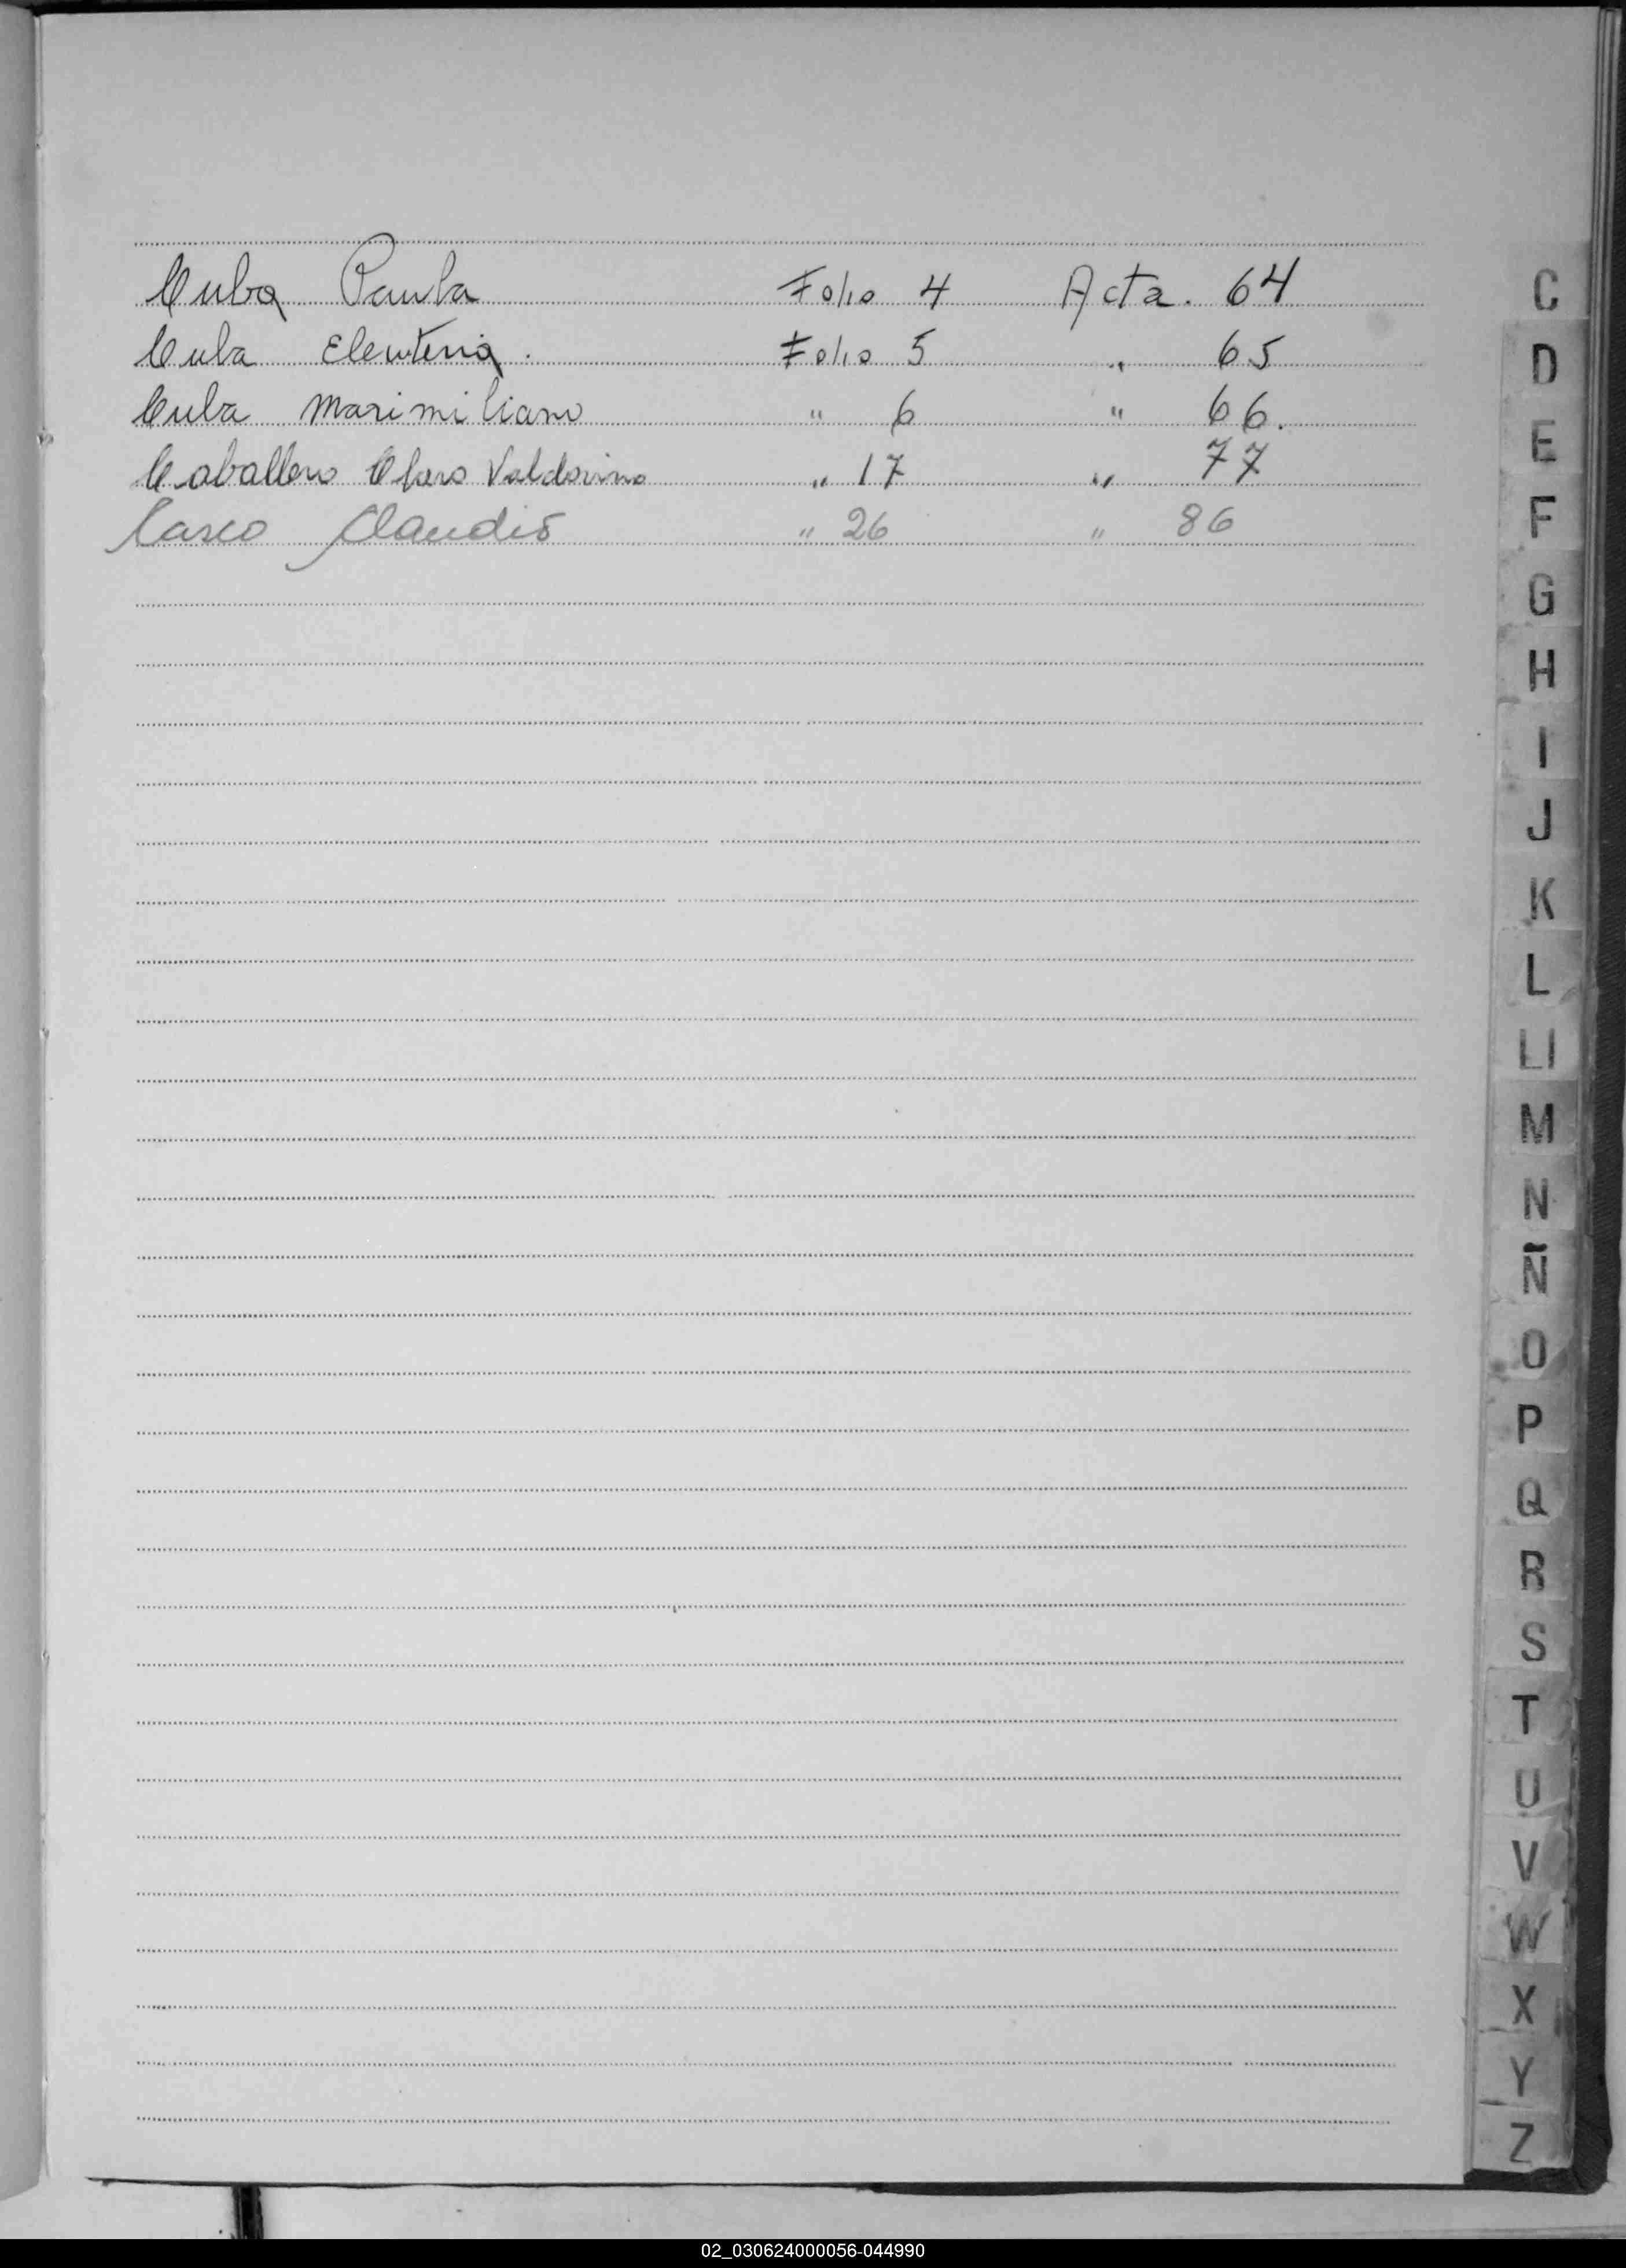 Cuba Paula Folio 4 Acta. 64
Cuba Eleuteria. Folio 5 " 65
Cuba Maximiliano " 6 " 66.
Caballero Claro Valdovino " 17 " 77
Casco Claudio " 26 " 86
C
D
E
F
G
H
I
J
K
L
Ll
M
N
Ñ
O
P
Q
R
S
T
U
V
W
X
Y
Z
02_030624000056-044990